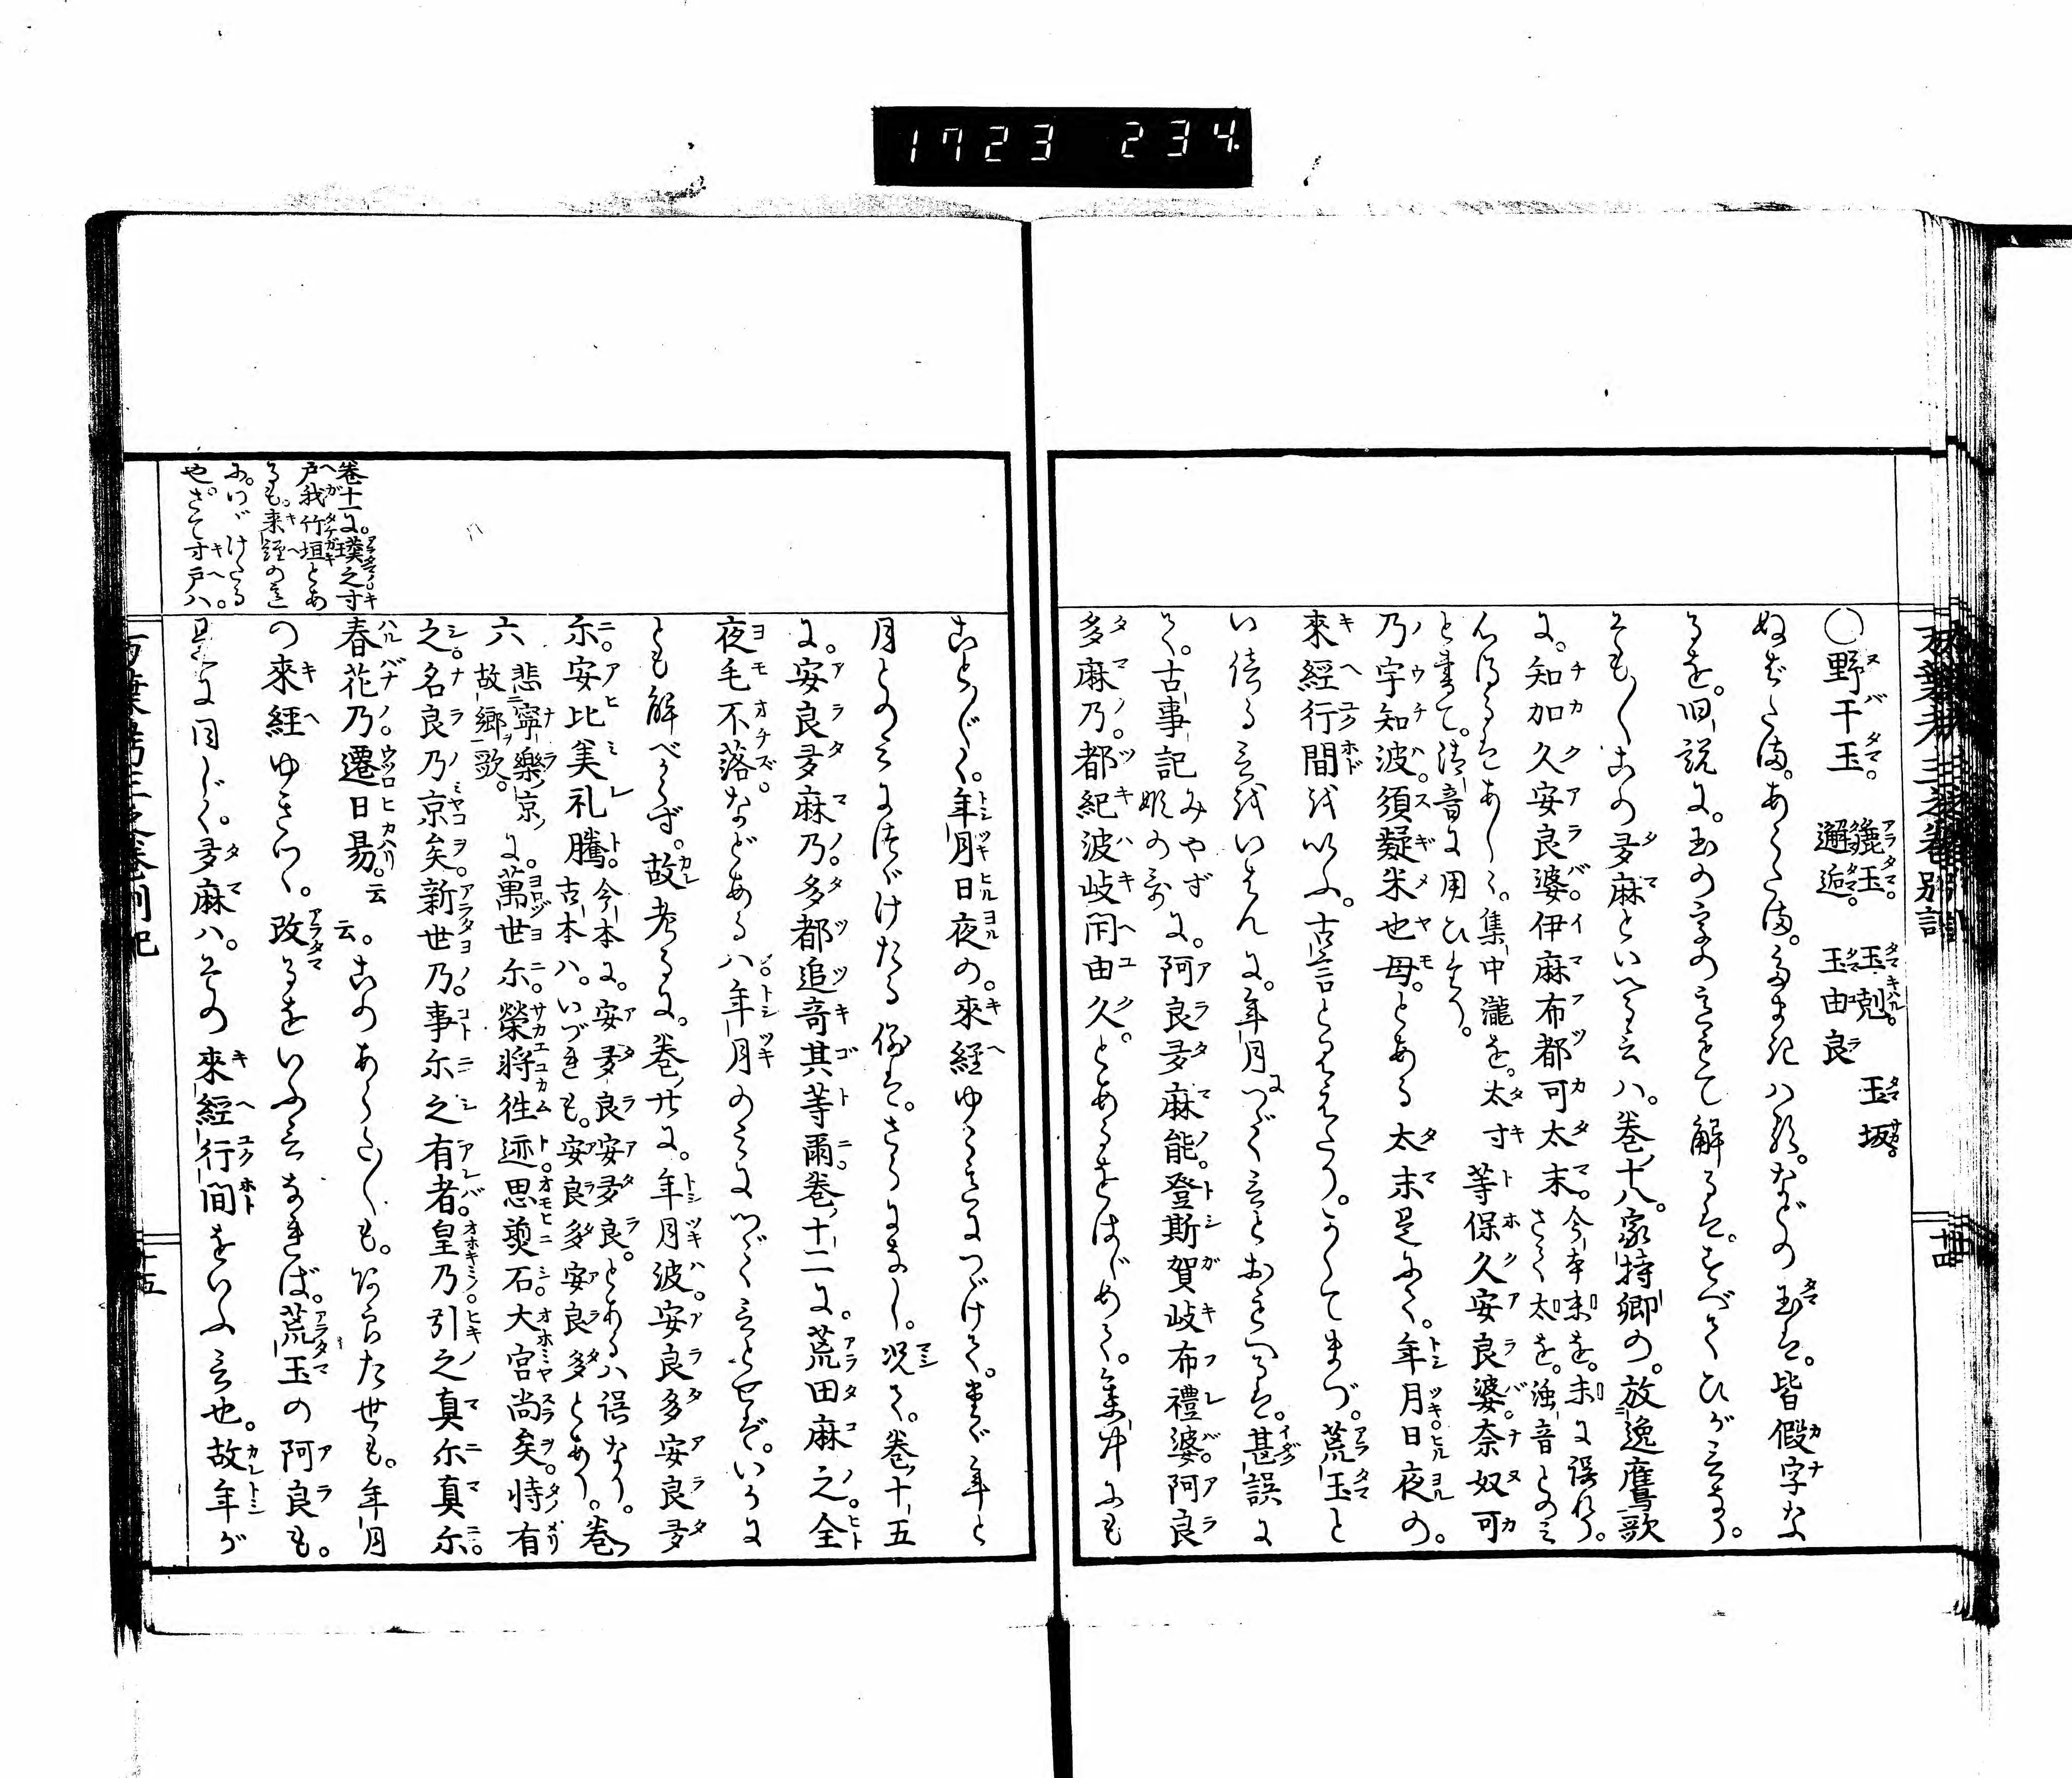 1723 234
萬葉考三之巻別記
十四
○野干玉。麁玉。邂逅。玉剋。玉由良 玉坂。
ぬばたま。あらたま。たまきはる。などの玉は。皆假字な
るを。旧説に。玉の字の意もて解るは。すべてひが言なり。
そも〳〵この多麻といへる言ハ。巻十八。家持卿の。放逸鷹歌
に。知加久安良婆。伊麻布都可太末。等保久安良婆。奈奴可
今本末を。未に誤れり。さて太を。濁音とのミ
心得るはあしく。集中瀧を。太寸
と書て。清音に用ひたり。
乃宇知波。須疑米也母。とある太末是にて。年月日夜の。
來經行間を以いふ。古言とみえたり。かくてまづ。荒玉と
い傍る言をいはんに。年月につゞく言とおもへるは。甚誤に
て。古事記みやず姫の哥に。阿良多麻能。登斯賀岐布禮婆。阿良
多麻乃。都紀波岐閇由久。とあるをはじめて。集中にも
ことごとく。年月日夜の。來經ゆくさまにつゞけて。たゞ年と
月とのみにつゞけたる例は。さらになし。况て。巻十五
に。安良多麻乃。多都追奇其等爾。巻十二に。荒田麻之。全
夜毛不落。などあるハ。年月のミにつゞく言とせば。いかに
とも解べからず。故考るに。巻廿に。年月波。安良多多安良多
尓。安比美礼騰。今本に。安多良安多良。とあるハ誤なり。
古本ハ。いづれも。安良多安良多とあり。巻
六 悲寧樂京故郷歌。に。萬世尓。榮将徃迹。思煚石。大宮尚矣。恃有
之。名良乃京矣。新世乃。事尓之有者。皇乃引之真尓真尓。
春花乃。遷日易。云云。このあらた〳〵も。あらた世も。年月
の來經ゆきつゝ。改るをいふ言なれば。荒玉の阿良も。
是に同じく。多麻ハ。その來經行間をいふ言也。故年が
巻十一に。璞之寸
戸我竹垣とあ
るも。来經の意
に。つゞけたる
や。さて寸戸ハ。
十五